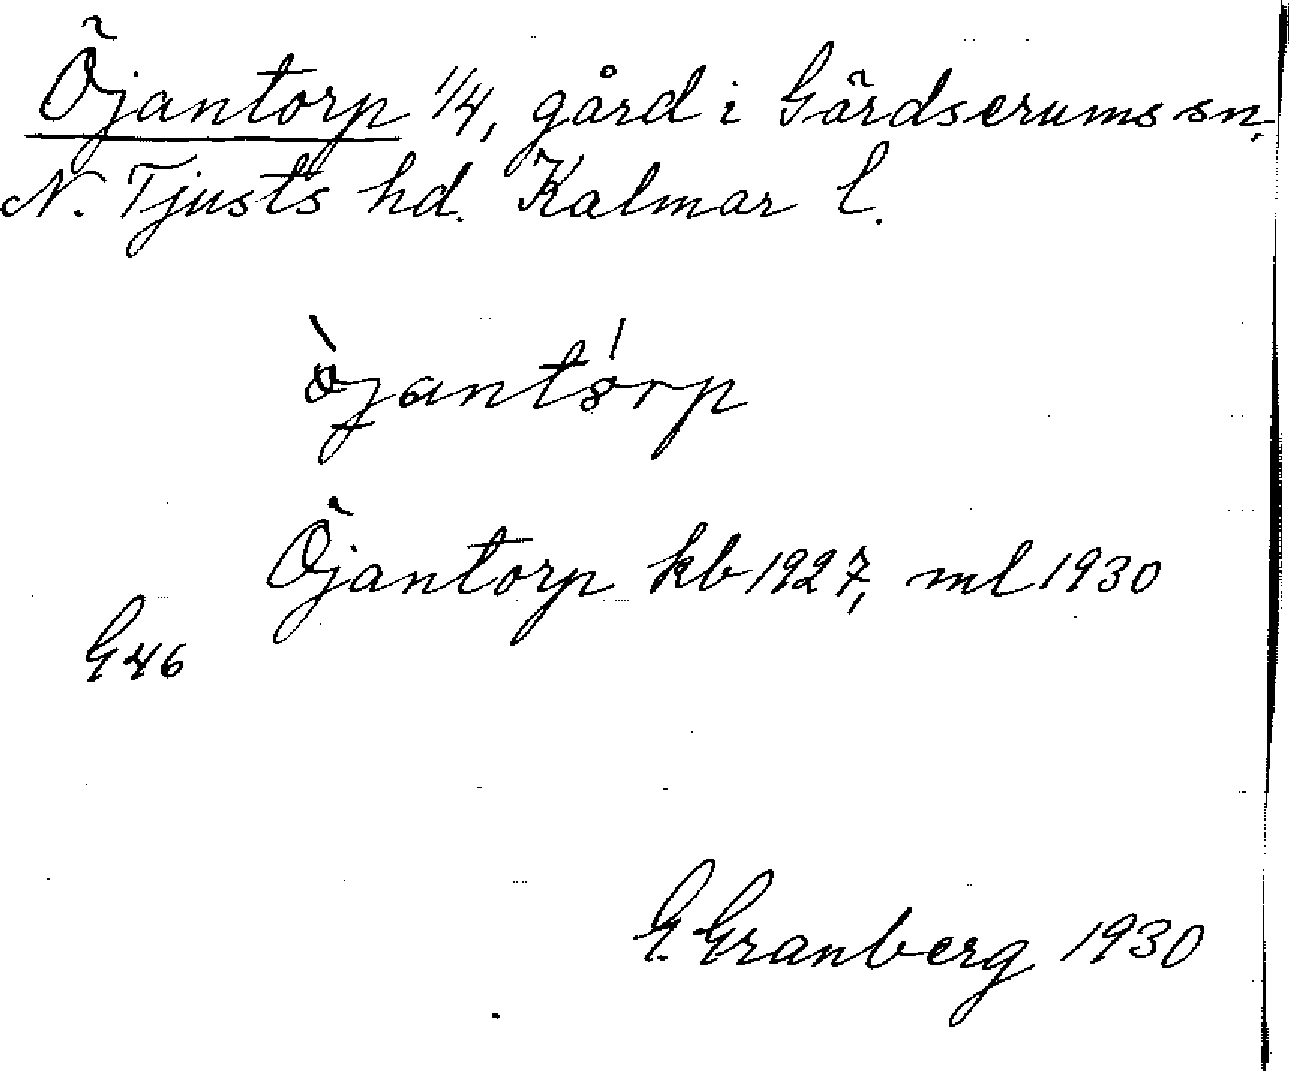 Öjantorp 1/4, gård i Gärdserums sn.
N. Tjusts hd. Kalmar l.
öjantorp
Öjantorp kb 1927, ml 1930
G 46
G. Granberg 1930